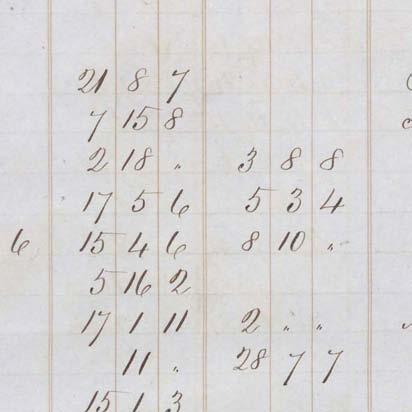 21 8 7
7 15 8
2 18 " 3 8 8
17 5 6 5 3 4
6 15 4 6 8 10 "
5 16 2
17 1 11 2 " "
11 " 28 7 7
15 1 3